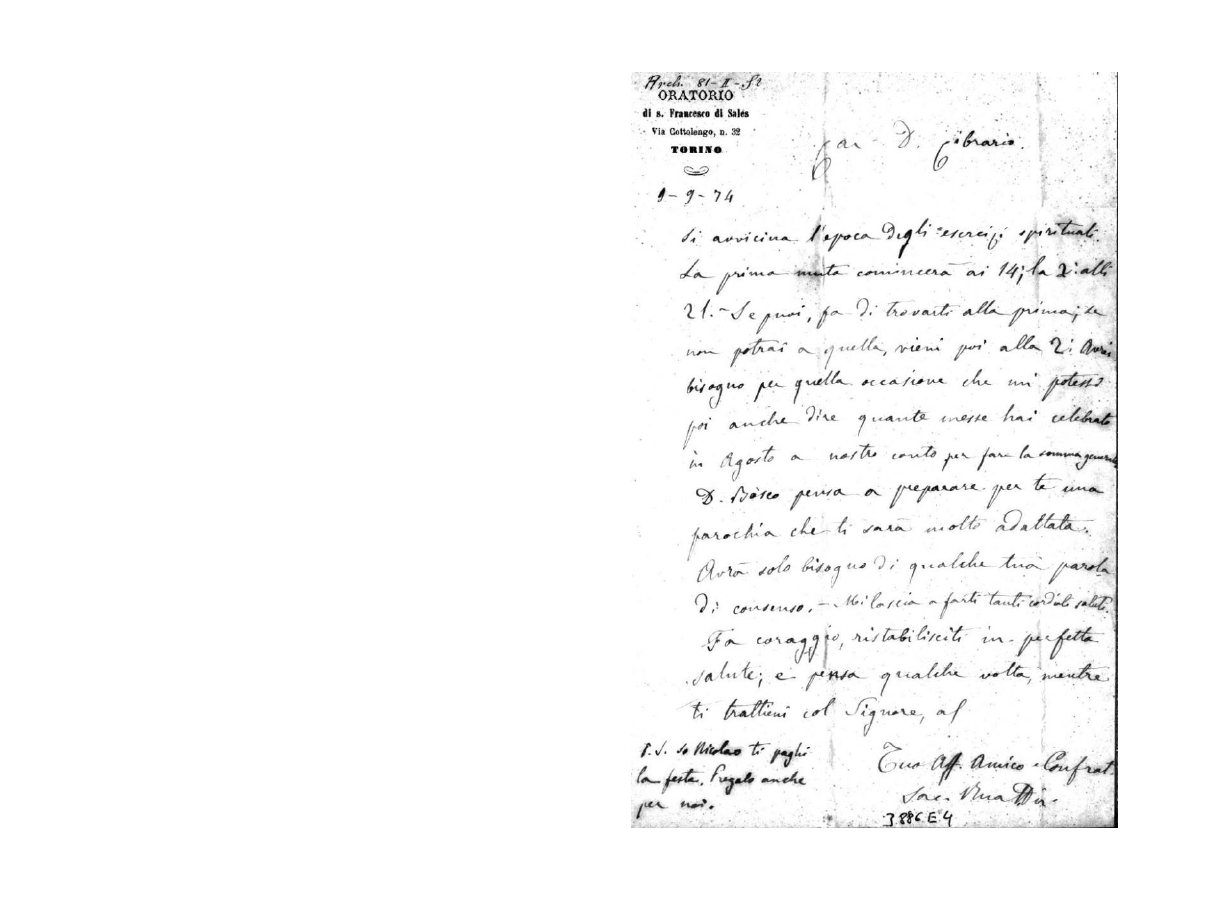 Arch. 81-II-
ORATORIO
di s. Francesco di Sales
Via Cottolengo, n. 32
TORINO
Car D. Cibrario.
9-9-74
Si avvicina l'epoca degli esercizi spirituali.
La prima muta comincerà ai 14; la 2ª alli
21. - Se puoi, fa di trovarti alla prima; se
non potrai a quella, vieni poi alla 2ª Avrei
bisogno per quella occasione che mi potessi
poi anche dire quante messe hai celebrato
in Agosto a nostro conto per fare la somma generale
D. Bosco pensa a preparare per te una
parochia che ti sarà molto adattata.
Avrà solo bisogno di qualche tua parola
di consenso. - Mi lascia a farti tanti cordiali saluti.
Fa coraggio, ristabilisciti in perfetta
salute; e pensa qualche volta, mentre
ti trattieni col Signore, al
Tuo Aff. Amico Confrat.
Sac. Rua
P.S. Nicolao ti paghi
la festa. anche
per noi.
3886 E 4